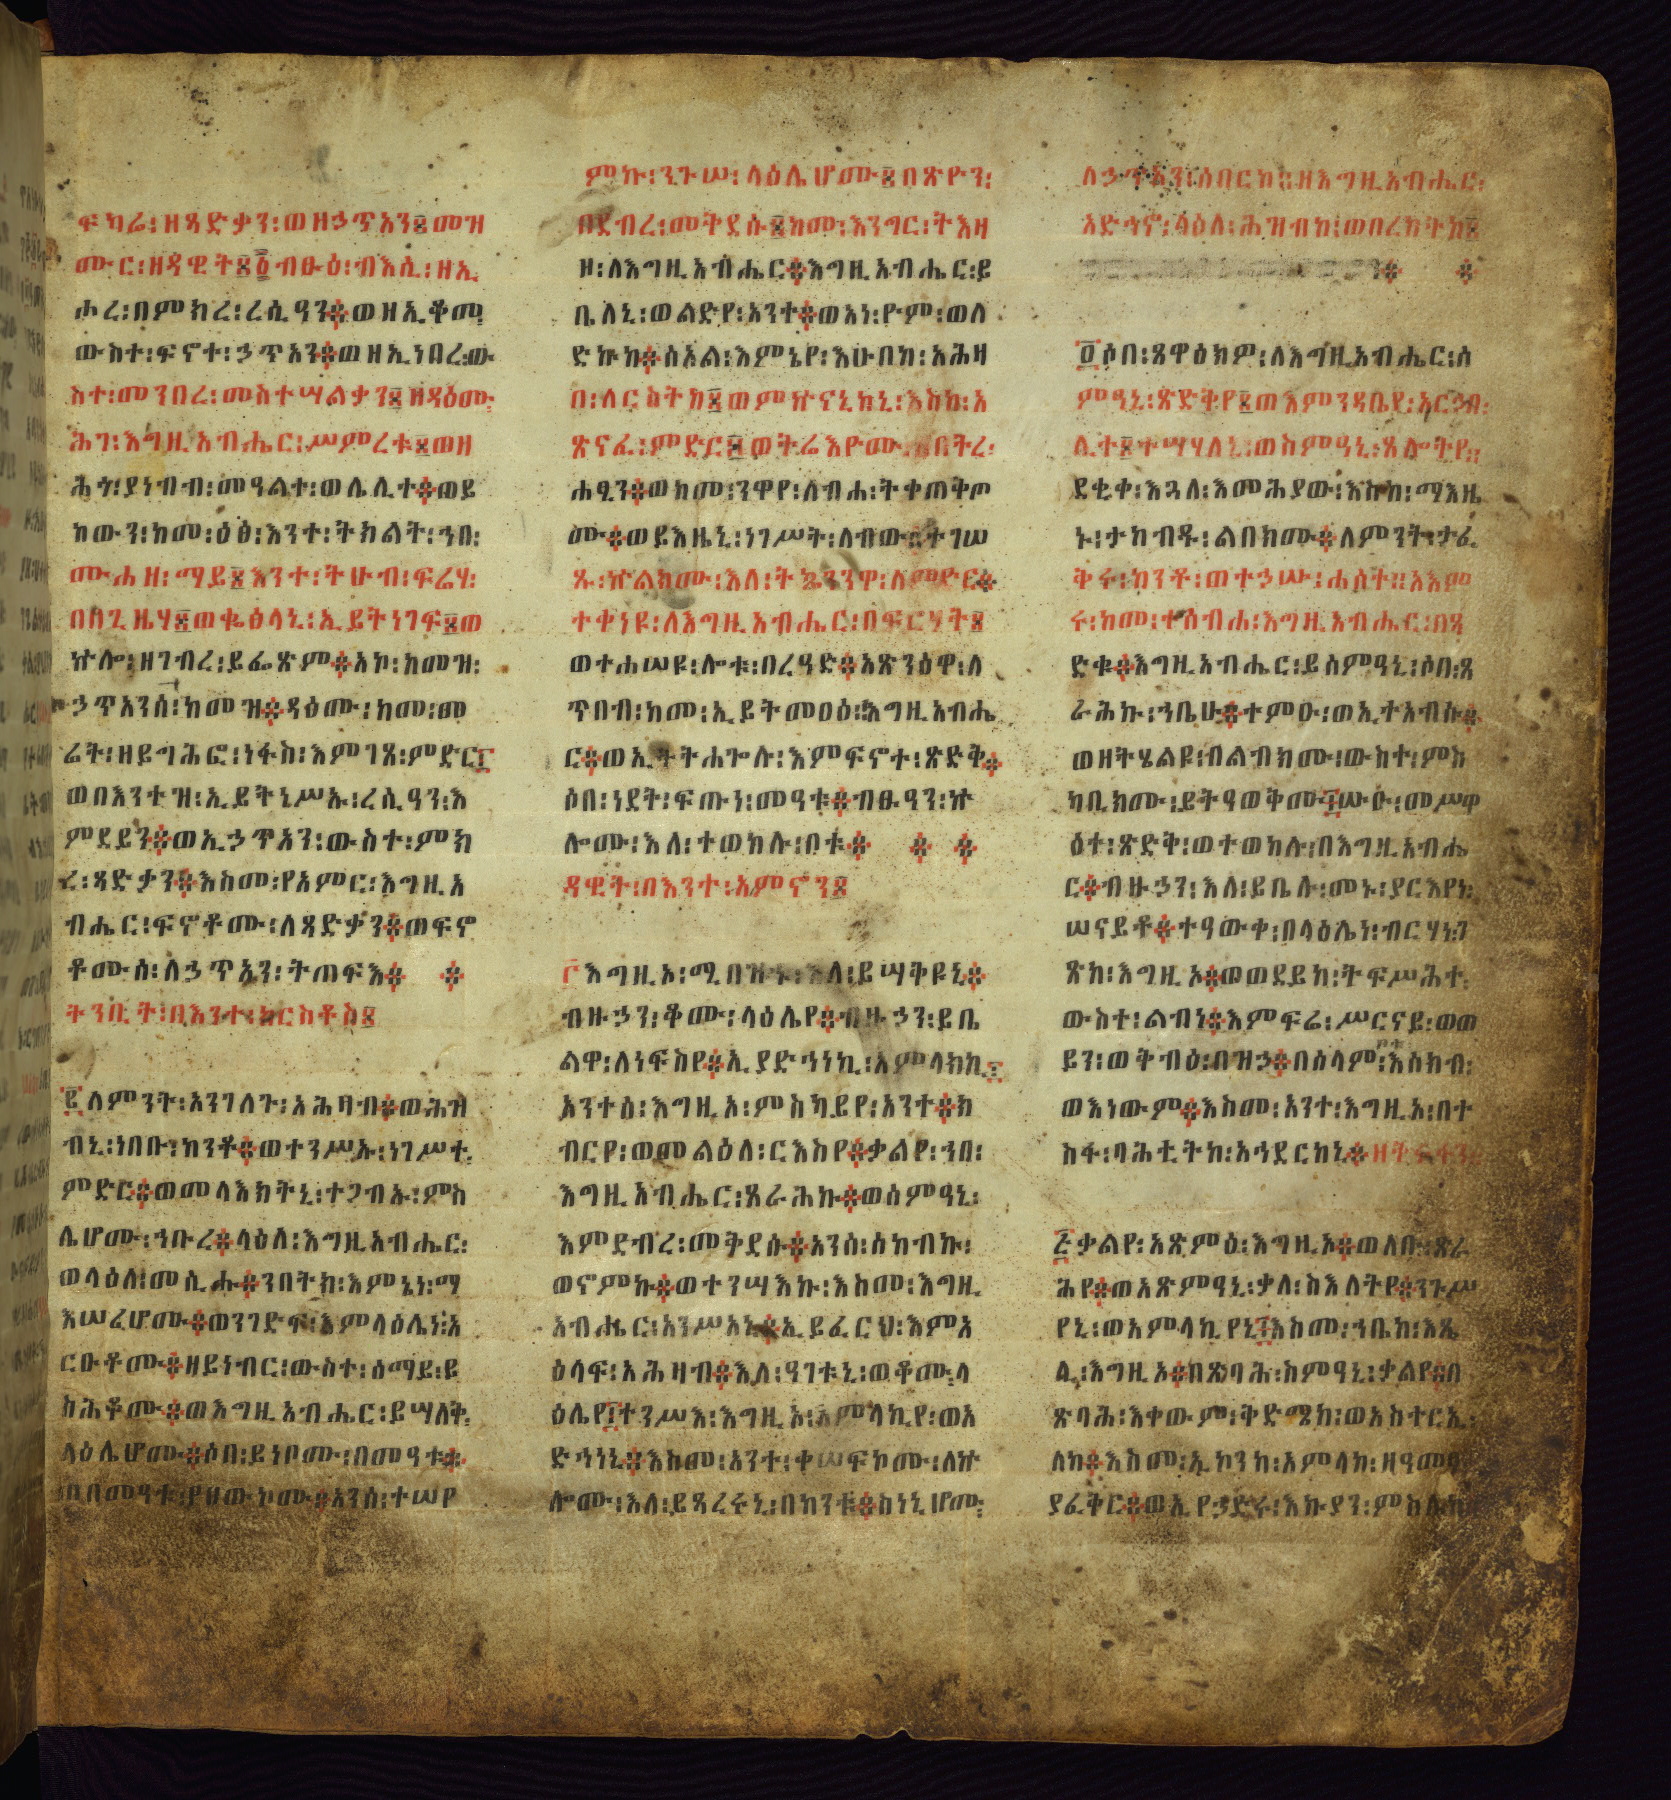 ፍካሬ፡ዘጻድቃን፡ወዘኃጥአን፨መዝ
ሙር፡ዘዳዊት፨፩ብፁዕ፡ብእሲ፡ዘኢ
ሖረ፡በምክረ፡ረሲዓን፨ወዘኢቆመ፡
ውስተ፡ፍኖተ፡ኃጥአን፨ወዘኢነበረ፡ው
ስተ፡መንበረ፡መስተሣልቃን፨ዘዳዕሙ፡
ሕገ፡እግዚአብሔር፡ሥምረቱ፨ወዘ
ሕጎ፡ያነብብ፡መዓልተ፡ወሌሊተ፨ወይ
ከውን፡ከመ፡ዕፅ፡እንተ፡ትክልት፡ኀበ፡
ሙሐዘ፡ማይ፨እንተ፡ትሁብ፡ፍሬሃ፡
በበጊዜሃ፨ወቈፅላኒ፡ኢይትነገፍ፨ወ
ኵሎ፡ዘገብረ፡ይፌጽም፨አኮ፡ከመዝ፡
ኃጥአንሰ፡ከመዝ፨ዳዕሙ፡ከመ፡መ
ሬት፡ዘይግሕፎ፡ነፋስ፡እምገጸ፡ምድር፤
ወበእንተዝ፡ኢይትኒሥኡ፡ረሲዓን፡እ
ምደይን፨ወኢኃጥአን፡ውስተ፡ምክ
ረ፡ጻድቃን፨እስመ፡የአምር፡እግዚአ
ብሔር፡ፍኖቶሙ፡ለጻድቃን፨ወፍኖ
ቶሙሰ፡ለኃጥአን፡ትጠፍእ፨ ፨
ትንቢት፡በእንተ፡ክርስቶስ፨
፪ለምንት፡አንገለጉ፡አሕዛብ፨ወሕዝ
ብኒ፡ነበቡ፡ከንቶ፨ወተንሥኡ፡ነገሥተ፡
ምድር፨ወመላእክትኒ፡ተጋብኡ፡ምስ
ሌሆሙ፡ኅቡረ፨ላዕለ፡እግዚአብሔር፡
ወላዕለ፡መሲሑ፨ንበትክ፡እምኔነ፡ማ
እሠሪሆሙ፨ወንገድፍ፡እምላዕሌነ፡አ
ርዑቶሙ፨ዘይነብር፡ውስተ፡ሰማይ፡ይ
ስሕቆሙ፨ወእግዚአብሔር፡ይሣለቅ፡
ላዕሌሆሙ፨ሶበ፡ይነቦሙ፡በመዓቱ፨
ወበመዓቱ፡የሀውኮሙ፨አንሰ፡ተሠየ
ምኩ፡ንጉሠ፡ላዕሌሆሙ፨በጽዮን፡
በደብረ፡መትደሱ፨ከመ፡እንግር፡ትእዛ
ዞ፡ለእግዚአብሔር፨እግዚአብሔር፡ይ
ቤለኒ፡ወልድየ፡አንተ፨ወአነ፡ዮም፡ወለ
ድኩከ፨ሰአል፡እምኔየ፡እሁበከ፡አሕዛ
በ፡ለርስትከ፨ወምኵናኒከኒ፡እስከ፡አ
ጽናፈ፡ምድር፨ወትሬእዮሙ፡በበትረ፡
ሐፂን፨ወከመ፡ንዋየ፡ለብሐ፡ትቀጠቅጦ
ሙ፨ወይእዜኒ፡ነገሥት፡ለብው፡ተገሠ
ጹ፡ኵልክሙ፡እለ፡ትኴንንዋ፡ለምድር፨
ተቀነዩ፡ለእግዚአብሔር፡በፍርሃት፨
ወተሐሠዩ፡ሎቱ፡በረዓድ፨አጽንዕዋ፡ለ
ጥበብ፡ከመ፡ኢይትመዐዕ፡እግዚአብሔ
ር፨ወኢትትሐጐሉ፡እምፍኖተ፡ጽድቅ፨
ሶበ፡ነደት፡ፍጡነ፡መዓቱ፨ብፁዓን፡ኵ
ሎሙ፡እለ፡ተወከሉ፡ቦቱ፨ ፨ ፨
ዳዊት፡በእንተ፡አምኖን፨
፫እግዚኦ፡ሚበዝኁ፡እለ፡ይሣቅዩኒ፨
ብዙኃን፡ቆሙ፡ላዕሌየ፨ብዙኃን፡ይቤ
ልዋ፡ለነፍስየ፨ኢያድኅነኪ፡አምላክኪ፤
አንተሰ፡እግዚኦ፡ምስካይየ፡አንተ፨ክ
ብርየ፡ወመልዕለ፡ርእስየ፨ቃልየ፡ኀበ፡
እግዚአብሔር፡ጸራሕኩ፨ወሰምዓኒ፡
እምደብረ፡መቅደሱ፨አንሰ፡ሰከብኩ፡
ወኖምኩ፨ወተንሣእኩ፡እስመ፡እግዚ
አብሔር፡አንሥአኒ፨ኢይፈርህ፡እምአ
ዕላፍ፡አሕዛብ፨እለ፡ዓገቱኒ፡ወቆሙ፡ላ
ዕሌየ፤ተንሥእ፡እግዚኦ፡አምላኪየ፡ወአ
ድኅነኒ፨እስመ፡አንተ፡ቀሠፍኮሙ፡ለኵ
ሎሙ፡እለ፡ይጻረሩኒ፡በከንቱ፨ስነኒሆሙ፡
ለኃጥአን፡ሰበርከ፡ዘእግዚአብሔር፡
አድኅኖ፡ላዕለ፡ሕዝብከ፡ወበረከትከ፨
፬ሶበ፡ጸዋዕክዎ፡ለእግዚአብሔር፡ሰ
ምዓኒ፡ጽድቅየ፨ወእምንዳቤየ፡አርኀበ፡
ሊተ፨ተሣሃለኒ፡ወስምዓኒ፡ጸሎትየ፡፡
ደቂቀ፡እጓለ፡እመሕያው፡እስከ፡ማእዜ
ኑ፡ታከብዱ፡ልበክሙ፨ለምንት፡ታፈ
ቅሩ፡ከንቶ፡ወተኃሡ፡ሐሰተ፡፡አእም
ሩ፡ከመ፡ተሰብሐ፡እግዚአብሔር፡በጻ
ድቁ፨እግዚአብሔር፡ይሰምዓኒ፡ሶበ፡ጸ
ራሕኩ፡ኀቤሁ፨ተምዑ፡ወኢተአብሱ፨
ወዘትሄልዩ፡በልብክሙ፡ውስተ፡ምስ
ካቢክሙ፡ይትዓወቅሙ፤ሡዑ፡መሥዋ
ዕተ፡ጽድቅ፡ወተወከሉ፡በእግዚአብሔ
ር፨ብዙኃን፡እለ፡ይቤሉ፡መኑ፡ያርእየነ፡
ሠናይቶ፨ተዓውቀ፡በላዕሌነ፡ብርሃነ፡ገ
ጽከ፡እግዚኦ፨ወወደይከ፡ትፍሥሕተ፡
ውስተ፡ልብነ፨እምፍሬ፡ሥርናይ፡ወወ
ይን፡ወቅብዕ፡በዝኃ፨በሰላም፡ቦቱ፡እሰክብ፡
ወእነውም፨እስመ፡አንተ፡እግዚኦ፡በተ
ስፋ፡ባሕቲትከ፡አኅደርከኒ፨
፭ቃልየ፡አጽምዕ፡እግዚኦ፨ወለቡ፡ጽራ
ሕየ፨ወአጽምዓኒ፡ቃለ፡ስእለትየ፨ንጉሥ
የኒ፡ወአምላኪየኒ፤እስመ፡ኀቤከ፡እጼ
ሊ፡እግዚኦ፨በጽባሕ፡ስምዓኒ፡ቃልየ፨በ
ጽባሕ፡እቀውም፡ቅድሜከ፡ወአስተርኢ፡
ለከ፨እስመ፡ኢኮንከ፡አምላከ፡ዘዓመፃ
ያፈቅር፨ወኢየኃድሩ፡እኩያን፡ምስሌከ